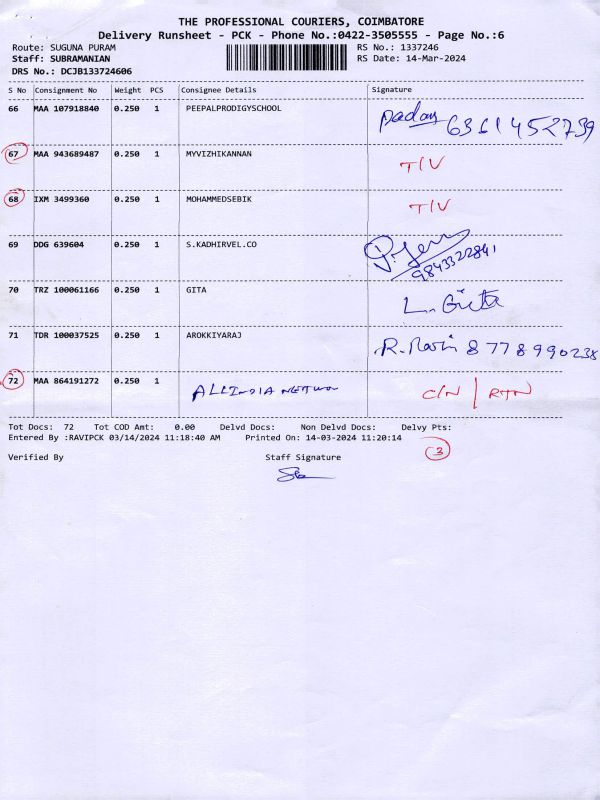 THE PROFESSIONAL COURIERS, COIMBATORE
Delivery Runsheet - PCK - Phone No.:0422-3505555 - Page No.:6
Route: SUGUNA PURAM RS No.: 1337246
Staff: SUBRAMANIAN RS Date: 14-Mar-2024
DRS No.: DCJB133724606
S No Consignment No Weight PCS Consignee Details Signature
66 MAA 107918840 0.250 1 PEEPALPRODIGYSCHOOL 6361452739
67 MAA 943689487 0.250 1 MYVIZHIKANNAN T/V
68 IXM 3499360 0.250 1 MOHAMMEDSEBIK T/V
69 DDG 639604 0.250 1 S.KADHIRVEL.CO 9843322841
70 TRZ 100061166 0.250 1 GITA L. Gita
71 TDR 100037525 0.250 1 AROKKIYARAJ R. 8778990238
72 MAA 864191272 0.250 1 ALLINDIA C/N | RTN
Tot Docs: 72 Tot COD Amt: 0.00 Delvd Docs: Non Delvd Docs: Delvy Pts:
Entered By :RAVIPCK 03/14/2024 11:18:40 AM Printed On: 14-03-2024 11:20:14
3
Verified By Staff Signature